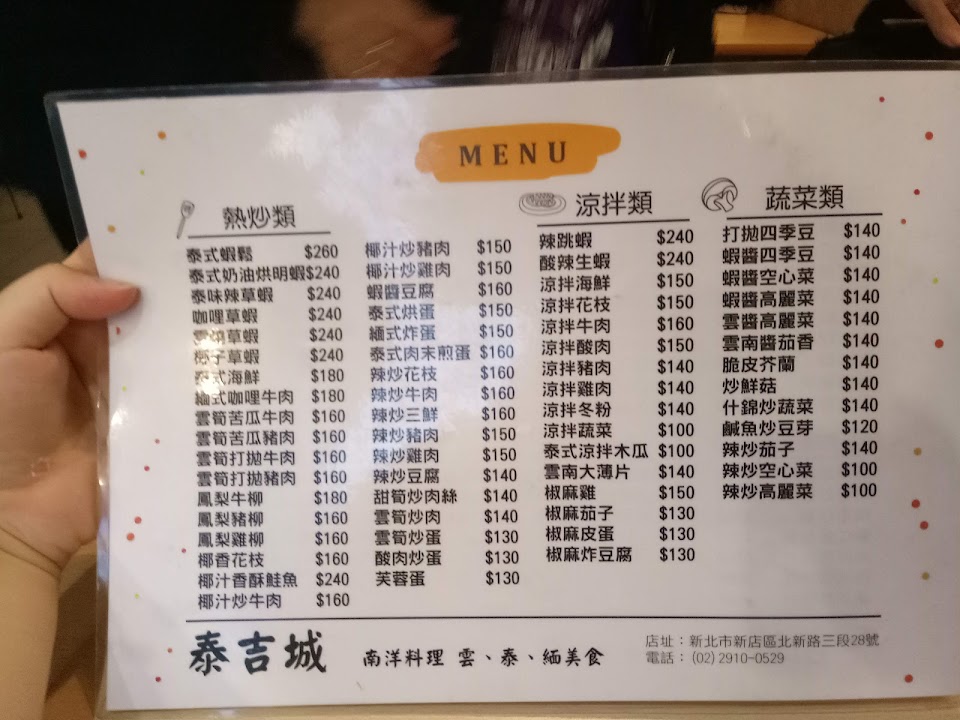 MENU
熱炒類
泰式蝦鬆 $260
泰式奶油烘明蝦 $240
泰味辣草蝦 $240
咖哩草蝦 $240
草蝦 $240
椰子草蝦 $240
泰式海鮮 $180
緬式咖哩牛肉 $180
雲筍苦瓜牛肉 $160
雲筍苦瓜豬肉 $160
雲筍打拋牛肉 $160
雲筍打拋豬肉 $160
鳳梨牛柳 $180
鳳梨豬柳 $160
鳳梨雞柳 $160
椰香花枝 $160
椰汁香酥鮭魚 $240
椰汁炒牛肉 $160
椰汁炒豬肉 $150
椰汁炒雞肉 $150
蝦醬豆腐 $160
泰式烘蛋 $150
緬式炸蛋 $150
泰式肉末煎蛋 $160
辣炒花枝 $160
辣炒牛肉 $160
辣炒三鮮 $160
辣炒豬肉 $150
辣炒雞肉 $150
辣炒豆腐 $140
甜筍炒肉絲 $140
雲筍炒肉 $140
雲筍炒蛋 $130
酸肉炒蛋 $130
芙蓉蛋 $130
涼拌類
辣跳蝦 $240
酸辣生蝦 $240
涼拌海鮮 $150
涼拌花枝 $150
涼拌牛肉 $160
涼拌酸肉 $150
涼拌豬肉 $140
涼拌雞肉 $140
涼拌冬粉 $140
涼拌蔬菜 $100
泰式涼拌木瓜 $100
雲南大薄片 $140
椒麻雞 $150
椒麻茄子 $130
椒麻皮蛋 $130
椒麻炸豆腐 $130
蔬菜類
打拋四季豆 $140
蝦醬四季豆 $140
蝦醬空心菜 $140
蝦醬高麗菜 $140
雲醬高麗菜 $140
雲南醬茄香 $140
脆皮芥蘭 $140
炒鮮菇 $140
什錦炒蔬菜 $140
鹹魚炒豆芽 $120
辣炒茄子 $140
辣炒空心菜 $100
辣炒高麗菜 $100
泰吉城
南洋料理 雲、泰、緬美食
店址：新北市新店區北新路三段28號
電話：(02) 2910-0529